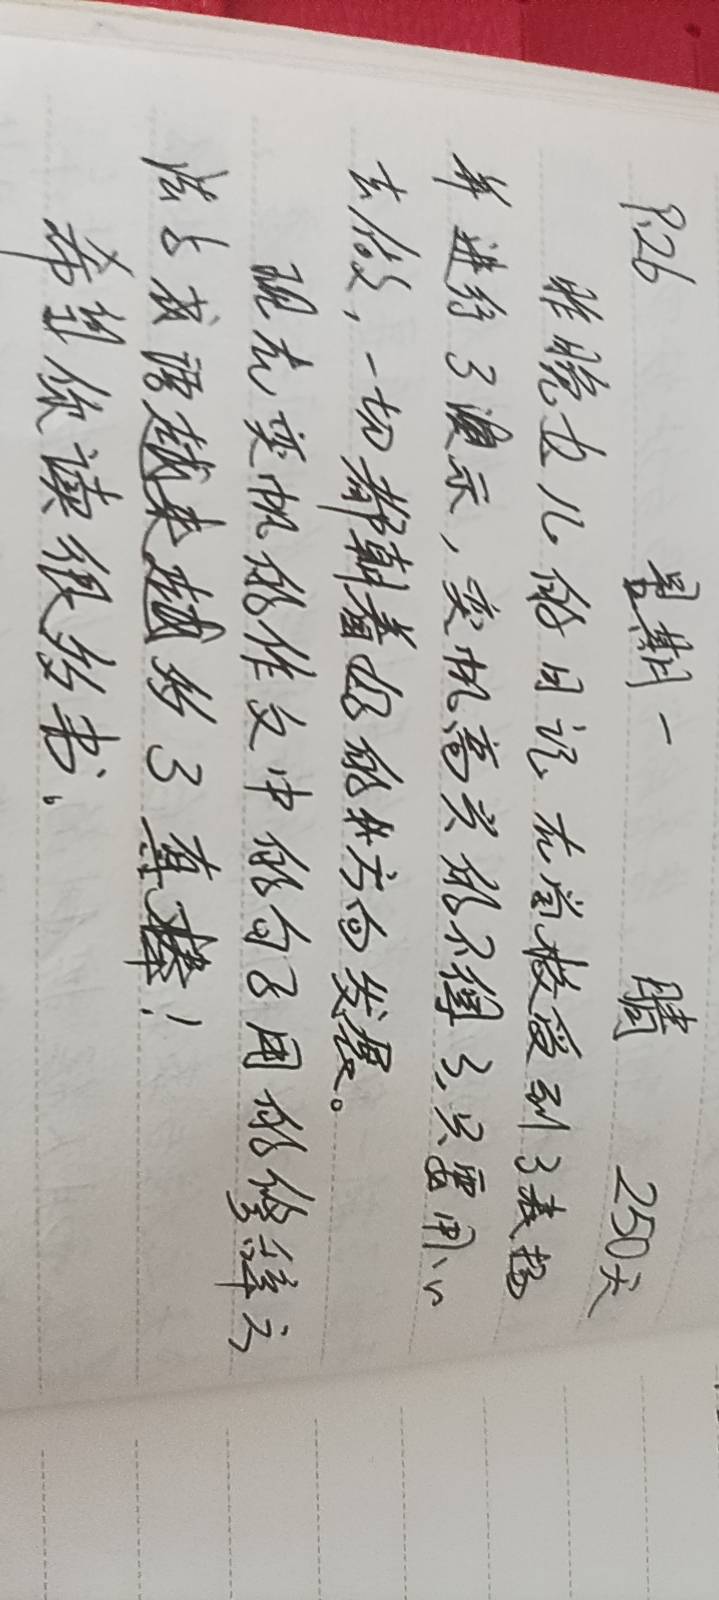 9.26 星期一 晴 250天
昨晚女儿的日记在学校受到了表扬
并进行了演示,奕帆高兴的不得了,只要用心
去做,一切都朝着好的方向发展。
现在奕帆的作文中的句子用的修辞方
法与成语越来越多了真棒!
希望你读很多书.